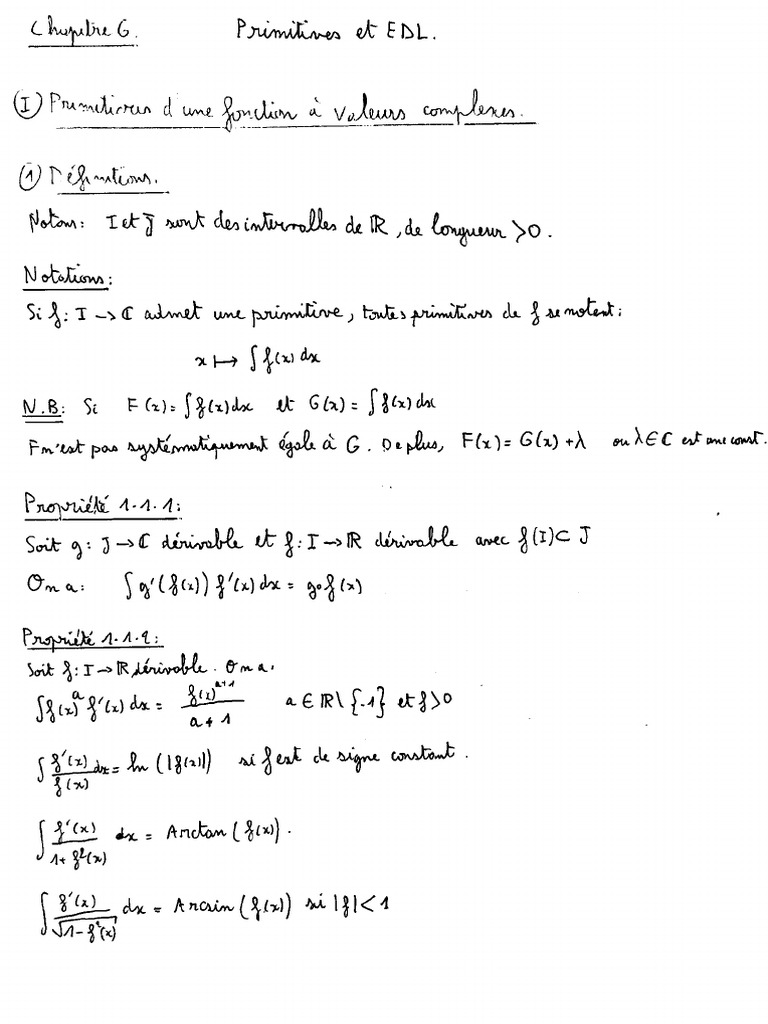 Chapitre 6. Primitives et EDL.
I Primitives d'une fonction à valeurs complexes.
1 Définitions.
Notons: I et J sont des intervalles de ℝ, de longueur >0.
Notations:
Si f: I → ℂ admet une primitive, toutes primitives de f se notent:
x ↦ ∫ f(x) dx
N.B: Si F(x) = ∫ f(x) dx et G(x) = ∫ f(x) dx
F n'est pas systématiquement égale à G. De plus, F(x) = G(x) + λ où λ ∈ ℂ est une const.
Propriété 1.1.1:
Soit g: J → ℂ dérivable et f: I → ℝ dérivable avec f(I) ⊂ J
On a: ∫ g'(f(x)) f'(x) dx = g∘f(x)
Propriété 1.1.2:
Soit f: I → ℝ dérivable. On a:
∫ f(x)^a f'(x) dx = f(x)^(a+1) / (a+1) a ∈ ℝ \ {-1} et f>0
∫ f'(x)/f(x) dx = ln(|f(x)|) si f est de signe constant.
∫ f'(x)/(1+f²(x)) dx = Arctan(f(x)).
∫ f'(x)/√(1-f²(x)) dx = Arcsin(f(x)) si |f| < 1